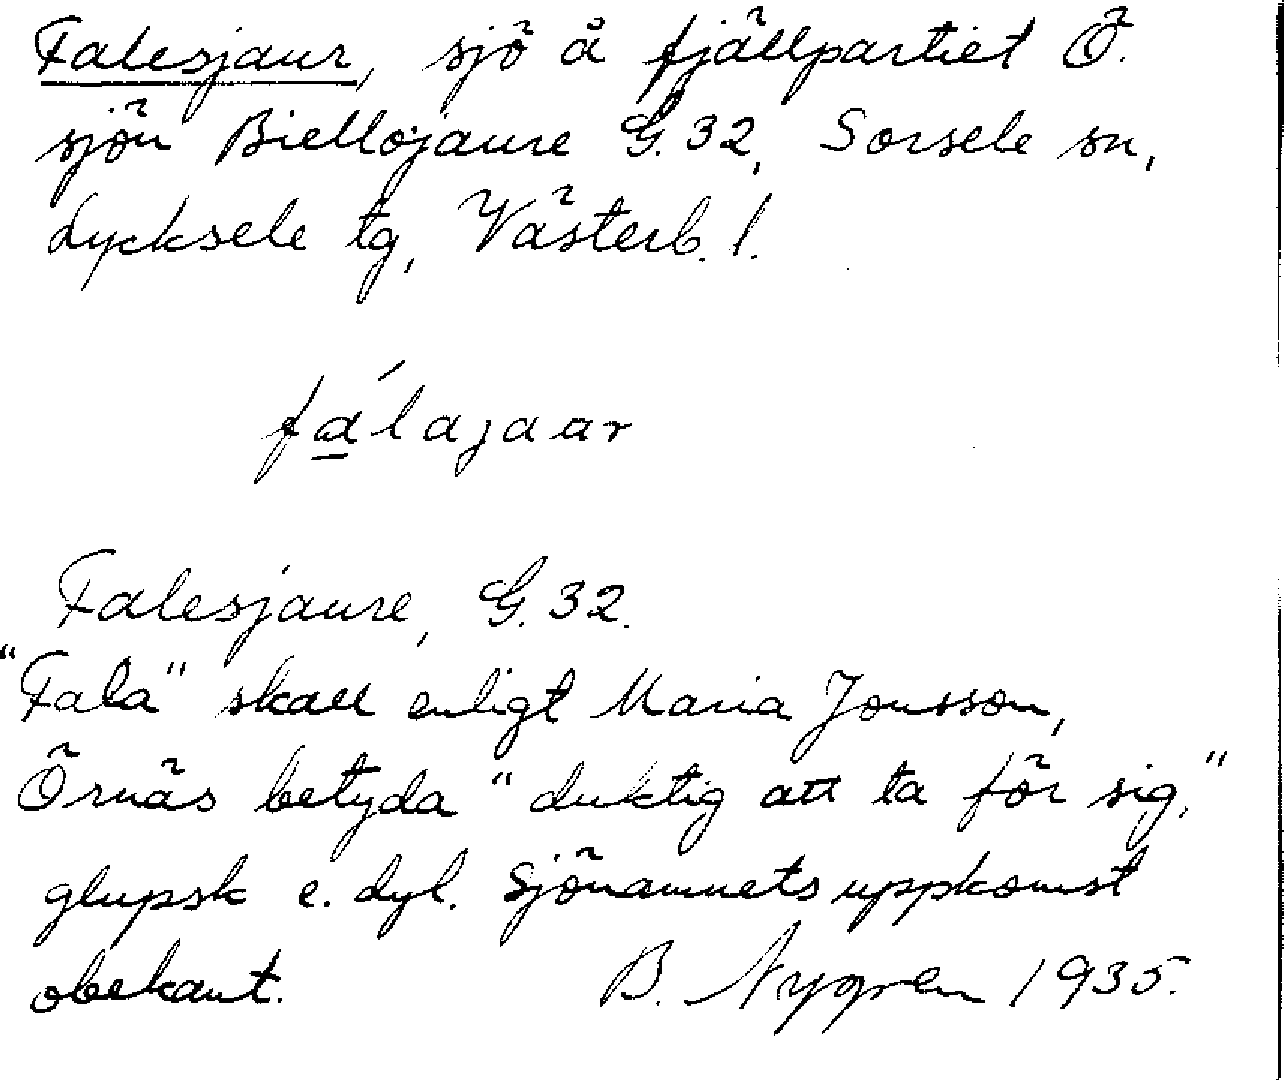 Falesjaur, sjö å fjällpartiet Ö.
sjön Biellojaure G.32, Sorsele sn,
Lycksele tg, Västerb. l.
fálajaar
Falesjaure, G.32.
"Fala" skall enligt Maria Jonsson,
Örnäs betyda "duktig att ta för sig,"
glupsk e. dyl. Sjönamnets uppkomst
obekant. B. Nygren 1935.